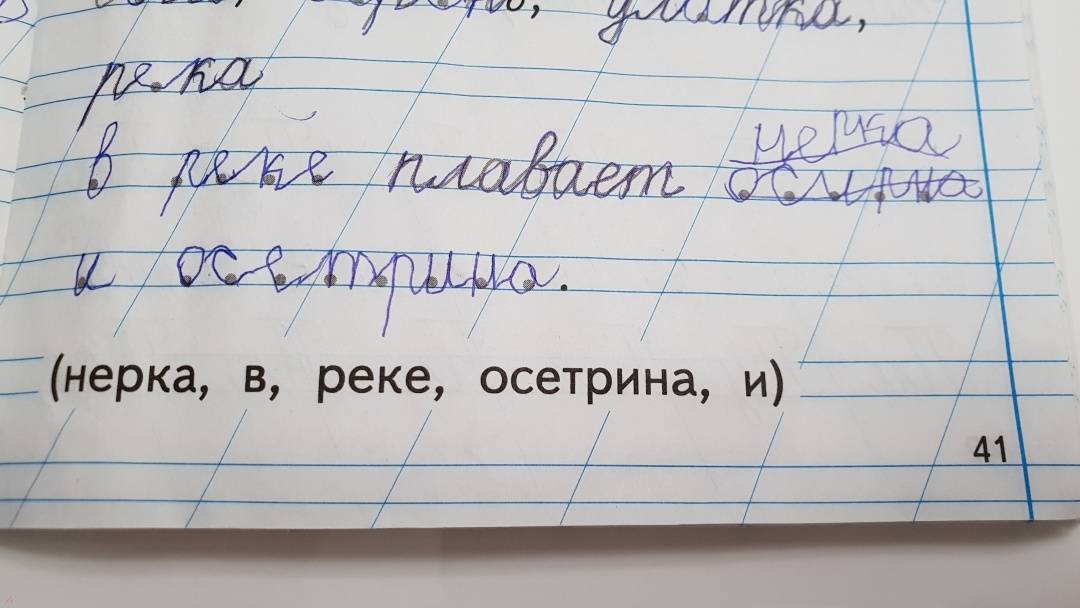 улитка,
река
в реке плавает нерка
осетрина
и осетрина.
(нерка, в, реке, осетрина, и)
41